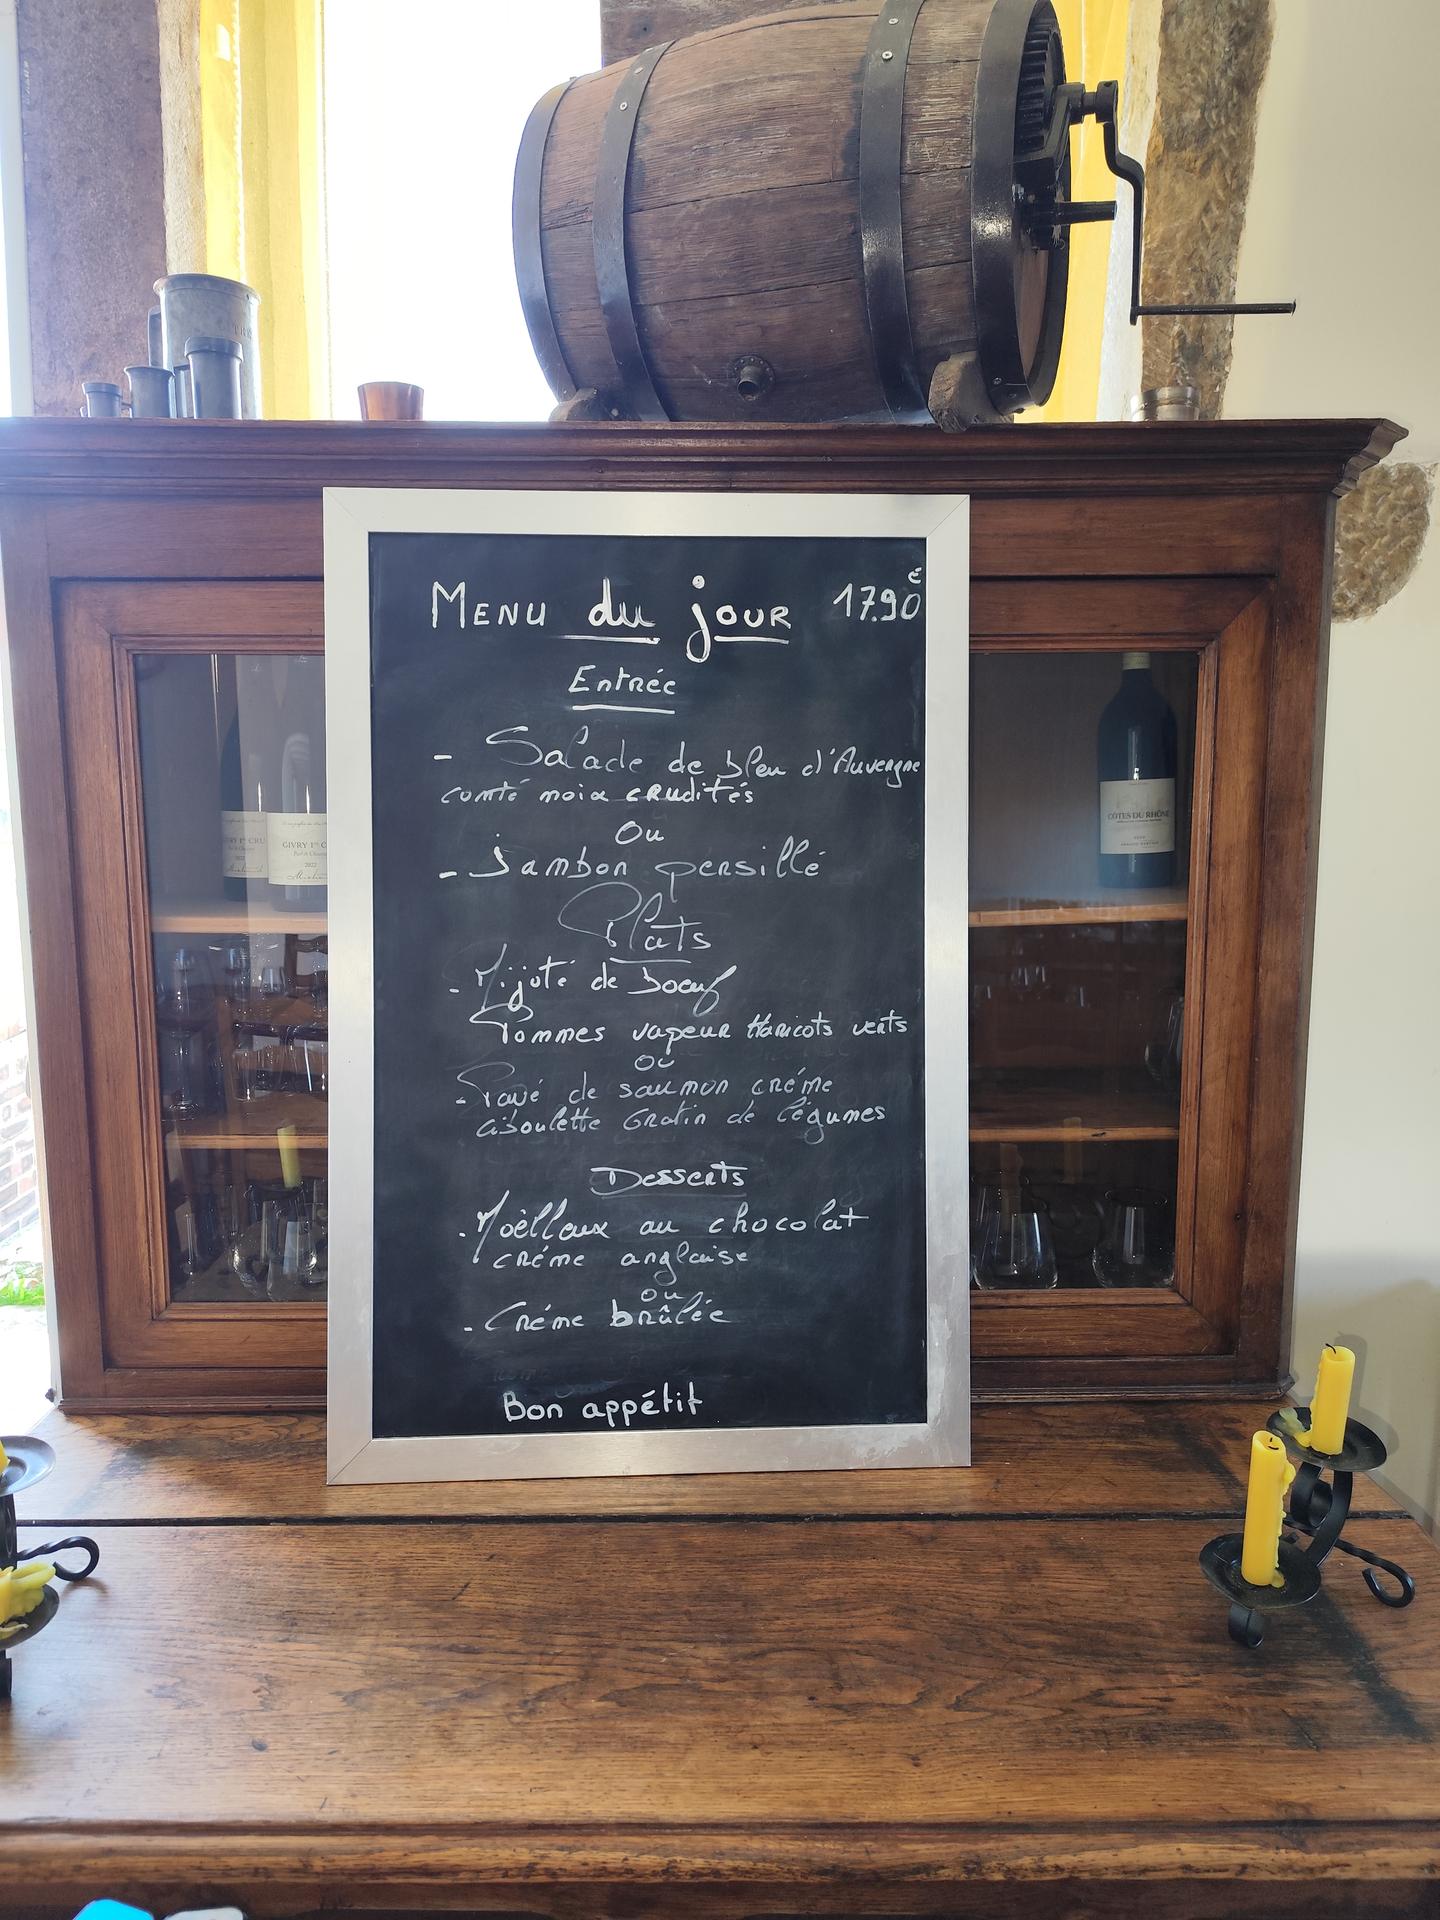 MENU du jour 17.90€
Entrée
- Salade de bleu d'Auvergne
comté noix crudités
Ou
- Jambon persillé
Plats
- Mijoté de boeuf
Pommes vapeur Haricots verts
ou
- Pavé de saumon créme
ciboulette Gratin de légumes
Desserts
- Moëlleux au chocolat
créme anglaise
ou
- Créme brûlée
Bon appétit
GIVRY 1er C
2022
RY 1er CRU
CÔTES DU RHÔNE